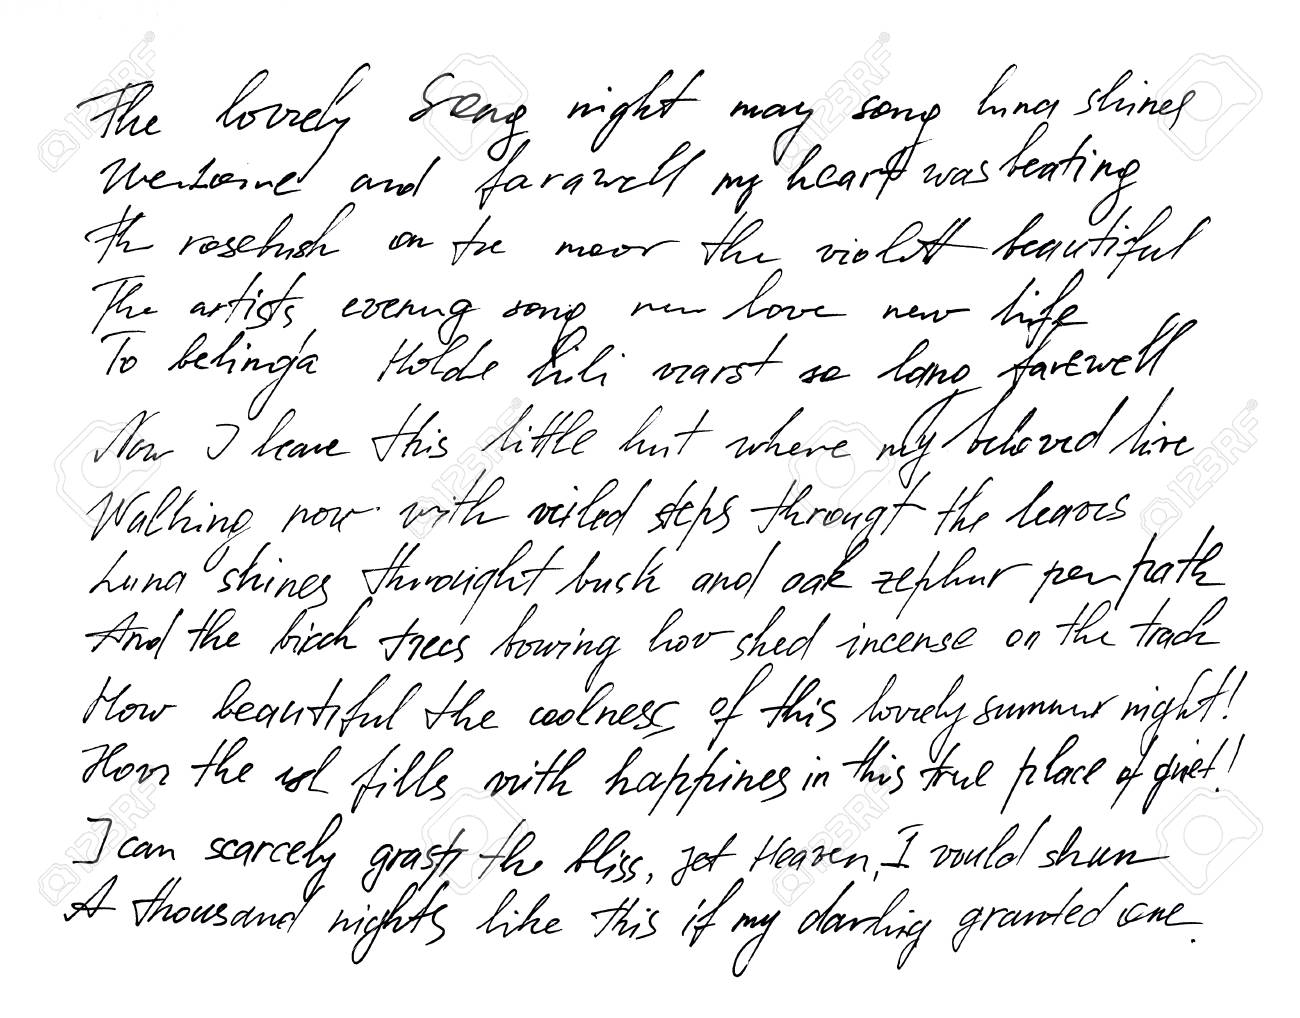 The lovely Song night may song luna shines
Welcome and farawell my heart was beating
Th rosebush on the moor the violett beautiful
The artists evening song new love new life
To belinda Holde Lili warst so lang farewell
Now I leave this little hut where my beloved live
Walking now with veiled steps througt the leaves
Luna shines throught busk and oak zephur per path
And the birch trees bowing how shed incense on the track
How beautiful the coolness of this lovely summer night!
How the fills with happines in this true place of quiet!
I can scarcely grasp the bliss, jet Heaven, I would shun
A thousand nights like this if my darling granted one.